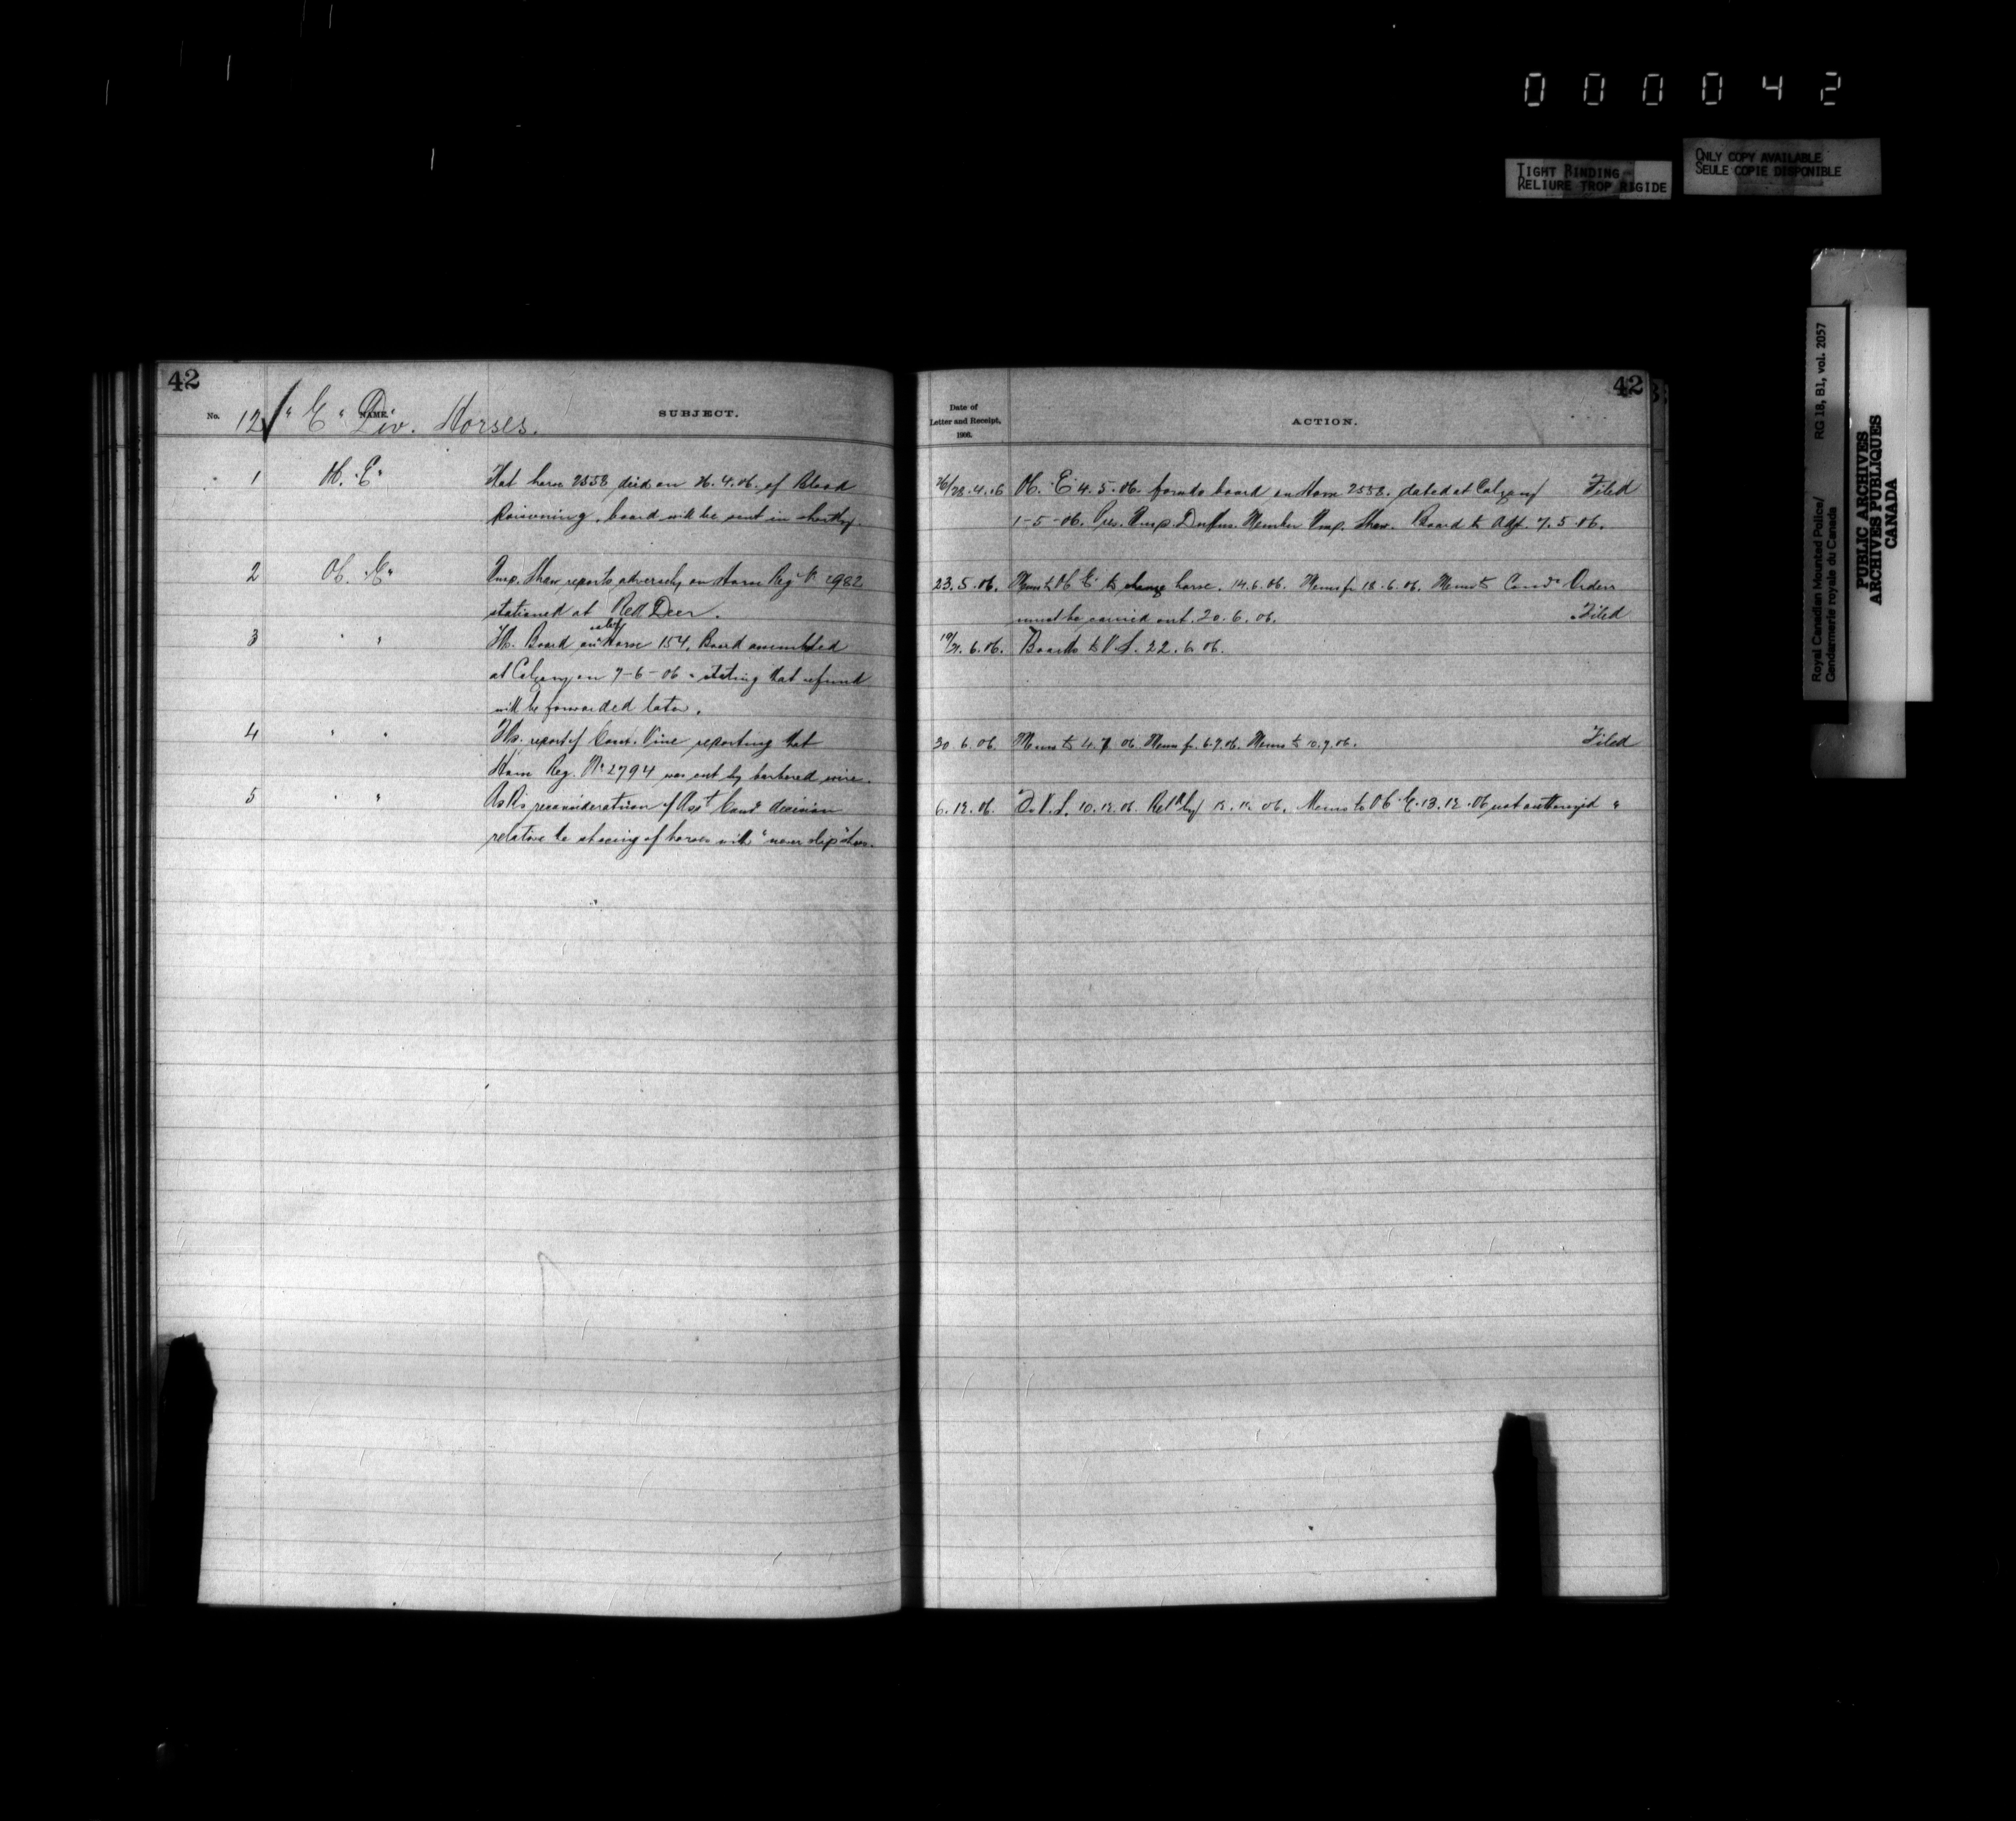 000042
TIGHT BINDING
RELIURE TROP RIGIDE
ONLY COPY AVAILABLE
SEULE COPIE DISPONIBLE
Royal Canadian Mounted Police/ RG 18, B1, vol. 2057
Gendarmerie royale du Canada
PUBLIC ARCHIVES
ARCHIVES PUBLIQUES
CANADA
42
No. 12 "E" Div. Horses.
NAME.
SUBJECT.
1 "E" That horse 2558 died on 26.4.06. of Blood
Poisoning, board will be sent in shortly.
2 "E" Insp. Shaw reports adversely on Horse Reg No 2982
stationed at Red Deer.
3 " " Board on Horse 154, Board assembled
at Calgary on 7-6-06 stating that refund
will be forwarded later.
4 " " report of Const. Vine reporting that
Horse Reg. No 2794 was cut by barbered wire.
5 " " Asks reconsideration of Asst Comr decision
relative to shoeing of horses with "never slip" shoes.
42
Date of
Letter and Receipt,
1906.
ACTION.
26/28.4.06 "E" 4.5.06. forwds board on Horse 2558. dated at Calgary Filed
1-5-06. Pres. Insp. Duffus. Member Insp. Shaw. Board to Adjt. 7.5.06.
23.5.06. Memo to "E" to change horse. 14.6.06. Memo fr 18.6.06. Memo to Comrs Orders
must be carried out. 20.6.06. Filed
19/21.6.06. Boards to V.S. 22.6.06.
30.6.06. Memo to 4.7.06 Memo fr. 6.7.06. Memo to 10.7.06. Filed
6.12.06. To V.S. 10.12.06. 12.12.06. Memo to "E" 13.12.06 not authorized "